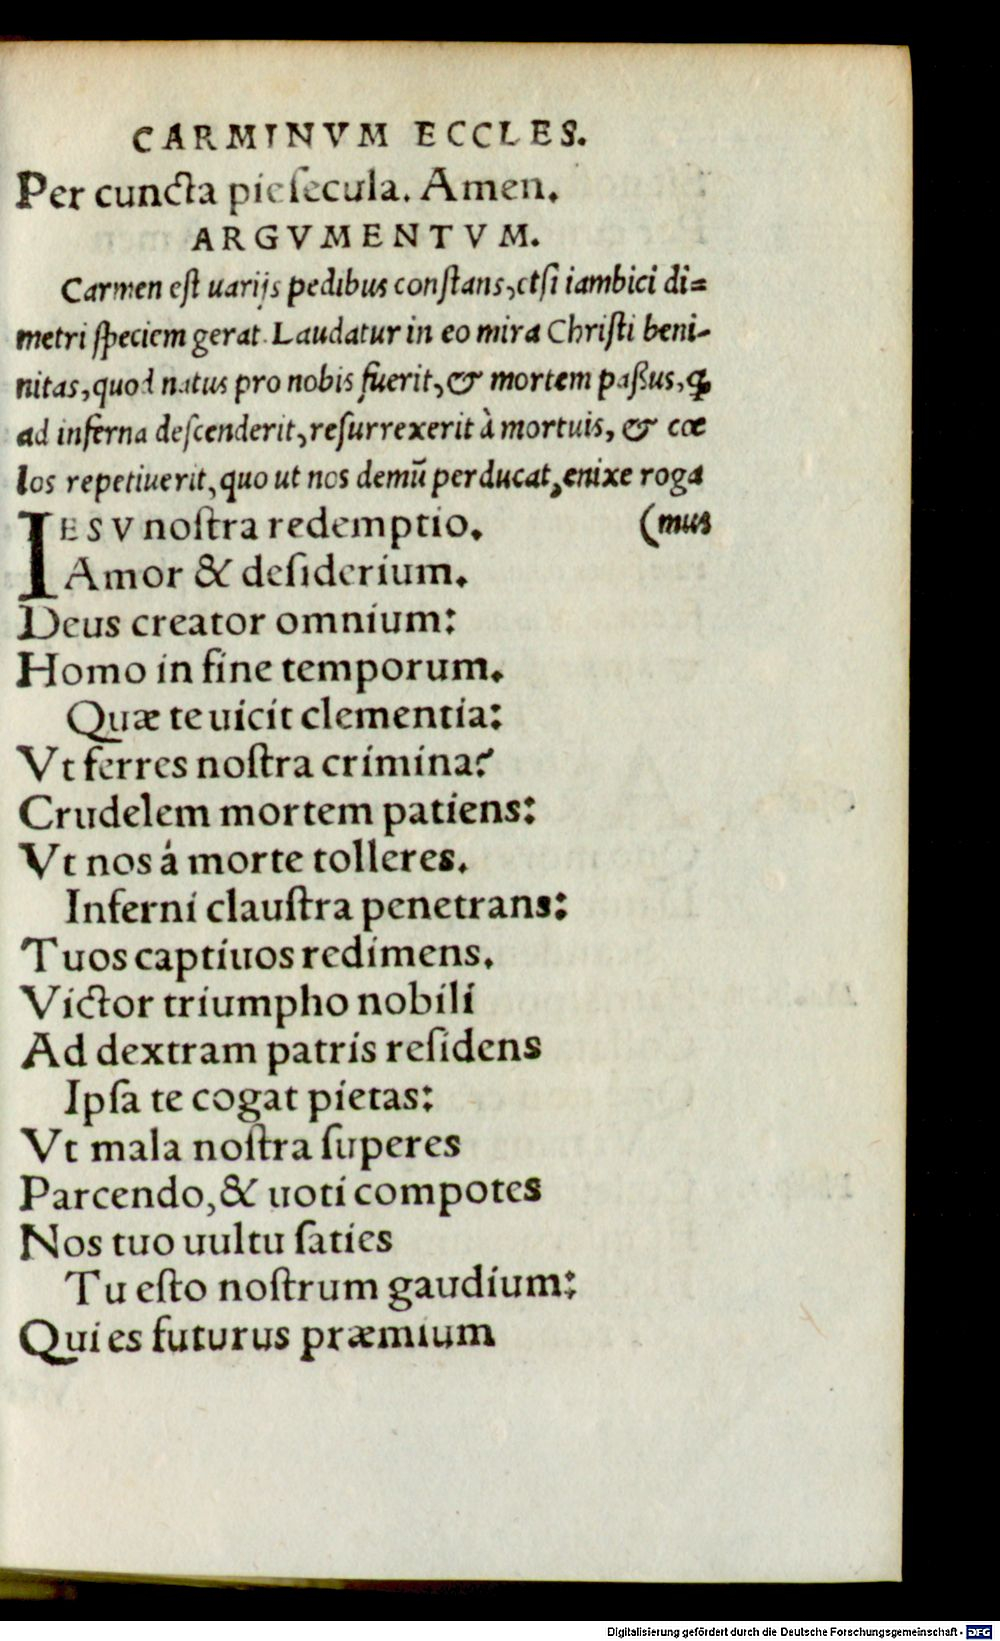 CARMINVM ECCLES.
Per cuncta pie ſecula. Amen.
ARGVMENTVM.
Carmen eſt uarijs pedibus conſtans, etſi iambici di=
metri ſpeciem gerat. Laudatur in eo mira Chriſti beni-
nitas, quod natus pro nobis fuerit, & mortem paßus, ꝙ
ad inferna deſcenderit, reſurrexerit à mortuis, & cœ
los repetiuerit, quo ut nos demū perducat, enixe roga
(mus
IESV noſtra redemptio.
Amor & deſiderium.
Deus creator omnium:
Homo in fine temporum.
Quæ te uicit clementia:
Vt ferres noſtra crimina?
Crudelem mortem patiens:
Vt nos á morte tolleres.
Inferni clauſtra penetrans:
Tuos captiuos redimens.
Victor triumpho nobili
Ad dextram patris reſidens
Ipſa te cogat pietas:
Vt mala noſtra ſuperes
Parcendo, & uoti compotes
Nos tuo uultu ſaties
Tu eſto noſtrum gaudium:
Qui es futurus præmium
Digitalisierung gefördert durch die Deutsche Forschungsgemeinschaft - DFG